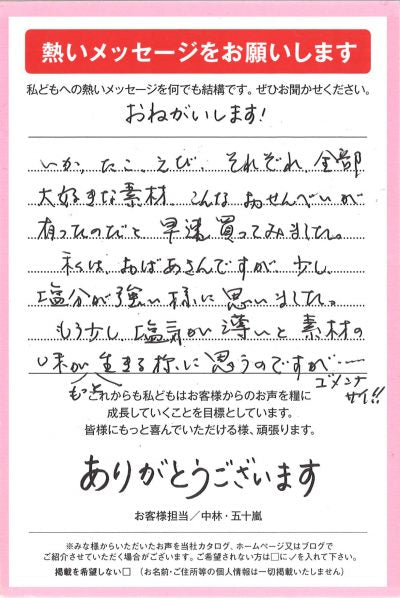 熱いメッセージをお願いします
私どもへの熱いメッセージを何でも結構です。ぜひお聞かせください。
おねがいします!
いか、たこ、えび、それぞれ、全部
大好きな素材。こんなおせんべいが
有ったのだと早速買ってみました。
私は、おばあさんですが、少し、
塩分が強い様に思いました。
もう少し、塩気が薄いと素材の
味がもっと生きる様に思うのですが……
ゴメンナサイ!!
これからも私どもはお客様からのお声を糧に
成長していくことを目標としています。
皆様にもっと喜んでいただける様、頑張ります。
ありがとうございます
お客様担当／中林・五十嵐
※みな様からいただいたお声を当社カタログ、ホームページ又はブログで
ご紹介させていただく場合がございます。ご希望されない方は□に✓を入れて下さい。
掲載を希望しない□ （お名前・ご住所等の個人情報は一切掲載いたしません）